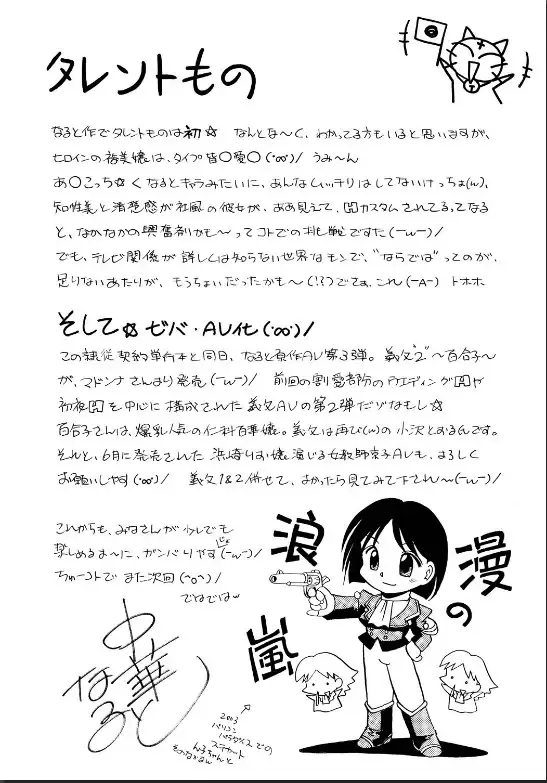 タレントもの
なると作でタレントものは初☆ なんとな〜く、わかってる方もいると思いますが、
ヒロインの裕美嬢は、タイプ皆〇愛〇(˙ω˙)/ うみ〜ん
あ〇こっち☆く なるとキャラみたいに、あんなしハッチリはしてないけっちょ(w)、
知性美と清楚感が社風の彼女が、ああ見えて、囚カスタムされてるってなる
と、なかなかの興奮剤かも〜ってコトでの挑戦ですた(ーωー)/
でも、テレビ関係が詳しくは知らない世界なモンで、"ならでは"ってのが、
足りないあたりが、もうちょいだったかも〜(!?)でてぁ、これ(ーAー) トホホ
そして☆ゼバ・AV化(˙ω˙)/
この隷従契約単行本と同日、なると原作AV第3弾。義父"2"〜百合子〜
が、マドンナさんより発売(ーωー)/ 前回の割愛者防のウエディング囚や
初夜囚を中心に構成された義父AVの第2弾だゾなもし☆
百合子さんは、爆乳人気の仁科百華嬢。義父は再び(w)の小沢とおるんです。
それと、6月に発売された 浜崎りお嬢演じる女教師京子AVも、よろしく
お願いしやす(˙ω˙)/ 義父1&2併せて、よかったら見てみて下さん〜(ーωー)/
これからも、みなさんが少しでも
楽しめるよーに、ガンバりやす(ーωー)/
ちゅーコトで また次回(^o^)/
でわでわ
浪漫の嵐
中華なると
2003